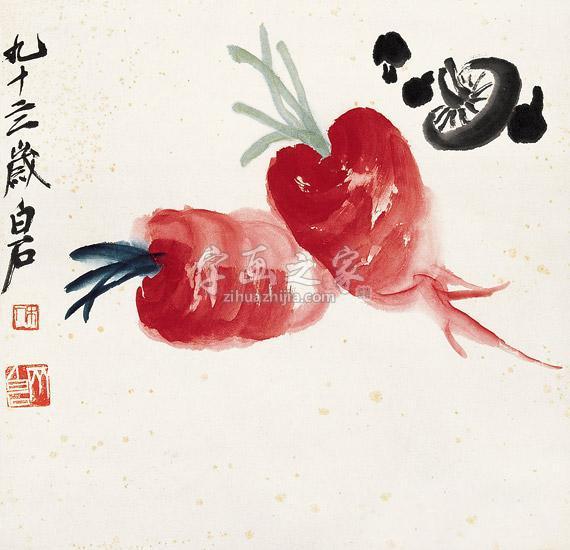 九十三歲白石
字画之家
zihuazhijia.com